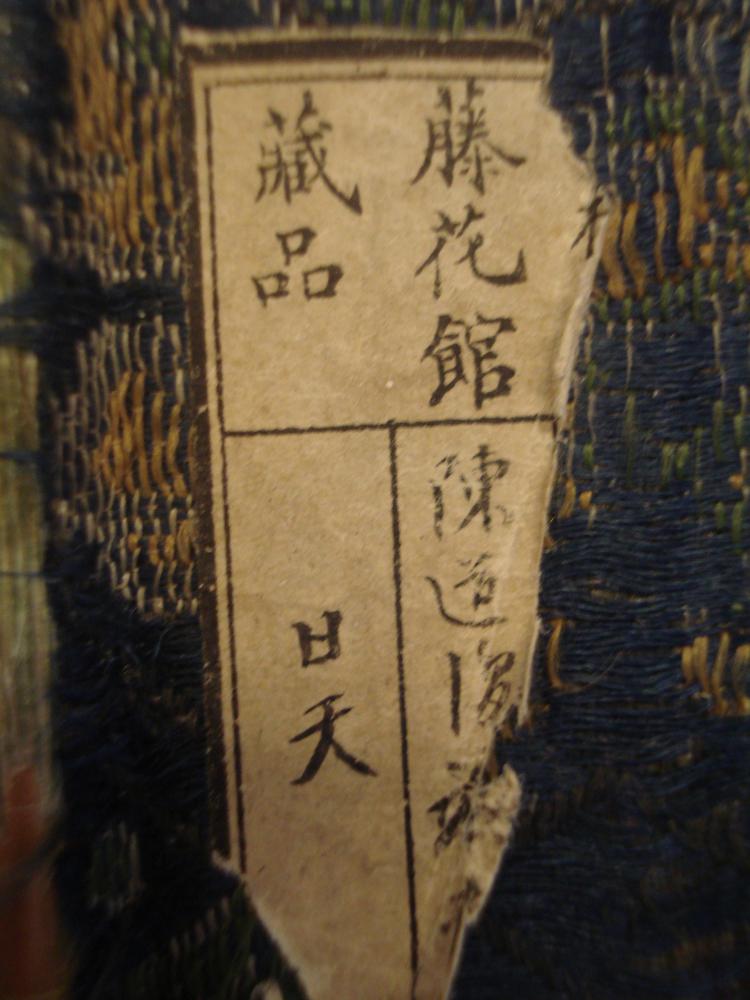 藤花館
藏品
陳道復
廿天